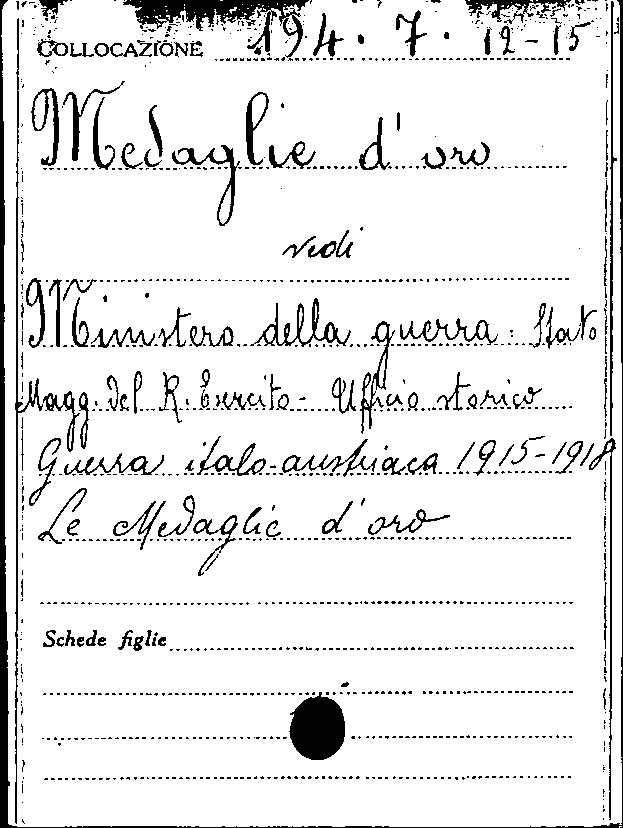 COLLOCAZIONE 194.7.12-15
Medaglie d'oro
vedi
Ministero della guerra. Stato
Magg. del R. Esercito - Ufficio storico
Guerra italo-austriaca 1915-1918
Le Medaglie d'oro
Schede figlie